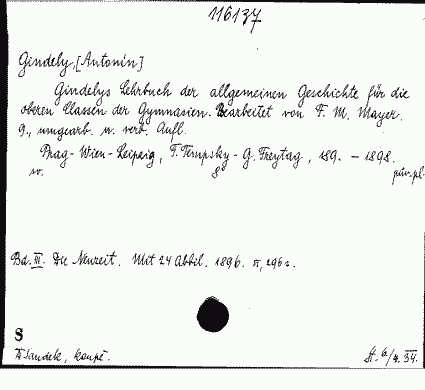 116137
Gindely, [Antonín]
Gindelys Lehrbuch der allgemeinen Geschichte für die
oberen Classen der Gymnasien. Bearbeitet von F. M. Mayer.
9., umgearb. u. verb. Aufl.
Prag-Wien-Leipzig, F. Tempsky - G. Freytag, 189. - 1898.
8°
Bd. III. Die Neuzeit. Mit 24 Abbil. 1896. 296 s.
S
koupě.